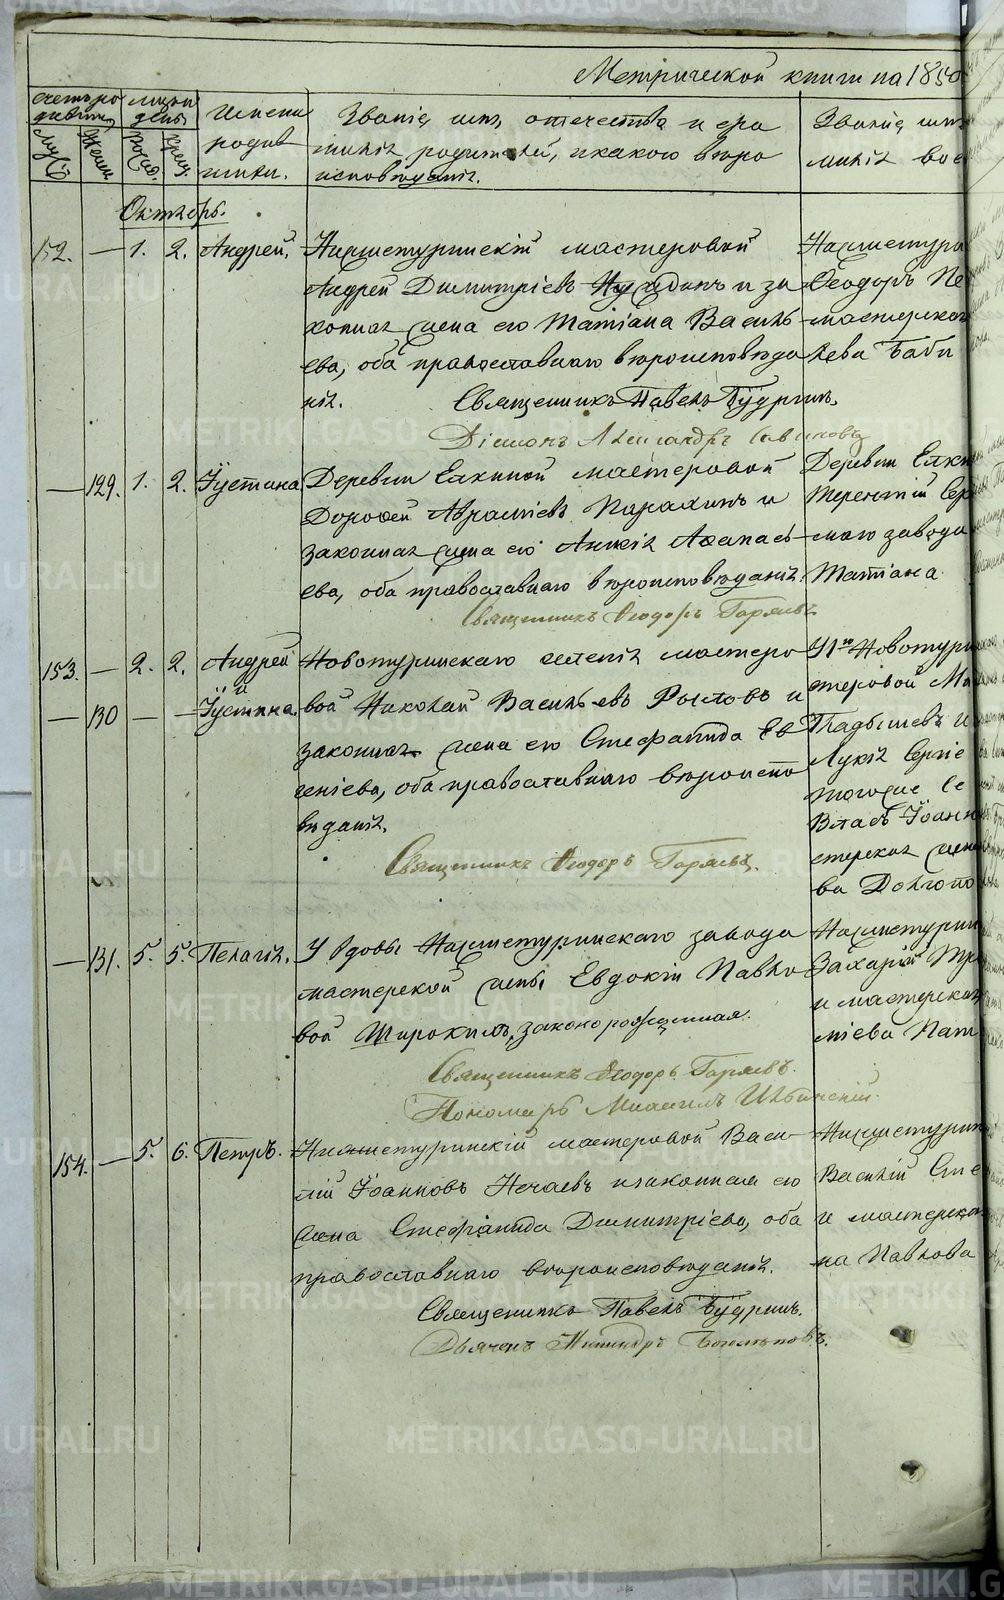 Метрической книги на 1850
Счетъ ро
дившихся
Муж.
Женс.
Мѣсяцъ и
день
Рожд.
Крещ.
Имена
родив
шихся.
Званіе, имя, отечество и фа
милія родителей, и какого вѣро
исповѣданія.
Званіе, имя
милія вос
Октябрь.
152. — 1. 2. Андрей.
Нижнетуринскій мастеровой
Андрей Димитріевъ и за
конная жена его Татіана Василь
ева, оба православнаго вѣроисповѣда
нія.
Священникъ Павелъ Будринъ.
Діаконъ Александръ
Нижнетури
Ѳеодоръ Пе
мастерская
лева Баби
— 129. 1. 2. Іустина.
Деревни Елкиной мастеровой
Дороѳей Аврамьевъ и
законная жена его Анисія Аѳанась
ева, оба православнаго вѣроисповѣданія.
Священникъ Ѳеодоръ Горяевъ.
Деревни Елки
Терентій Сер
маго завода
Татіана
153. — 2. 2. Андрей
и
— 130 — — Іустина.
Новотуринскаго селенія мастеро
вой Николай Васильевъ Рословъ и
законная жена его Стефанида Ев
геніева, оба православнаго вѣроиспо
вѣданія.
Священникъ Ѳеодоръ Горяевъ.
У 1го Новотури
стеровой Ма
Гладышевъ и
Лукія Сергіе
тогоже се
Власъ Іоанн
стерская жен
ва Долгопо
— 131. 5. 5. Пелагія.
У вдовы Нижнетуринскаго завода
мастерской жены Евдокіи Павло
вой Широкихъ, законорожденная.
Священникъ Ѳеодоръ Горяевъ.
Пономарь Михаилъ
Нижнетурин
Захарій Тр
и мастерская
міева Пат
154. — 5. 6. Петръ.
Нижнетуринскій мастеровой Васи
лій Іоанновъ Нечаевъ и законная его
жена Стефанида Димитріева, оба
православнаго вѣроисповѣданія.
Священникъ Павелъ Будринъ.
Дьячекъ
Нижнетурин
Василій Сте
и мастерская
на Павлова
METRIKI.GASO-URAL.RU